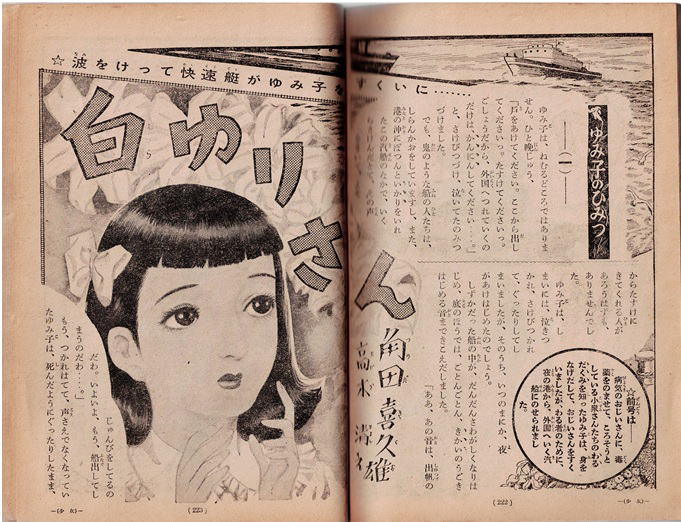 ☆波をけって快速艇がゆみ子をすくいに……
白ゆりさん
角田喜久雄
高木清
ゆみ子のひみつ
―(一)―
ゆみ子は、ねむるどころではありま
せん。ひと晩じゅう、
「戸をあけてください。ここから出し
てくださいっ。たすけてくださいっ。
ごしょうだから、外国へつれていくの
だけは、かんにんしてください……。」
と、さけびつづけ、泣いてたのみつ
づけました。
でも、鬼のような船の人たちは、
しらんかおをしていますし、また、
港の沖にぽつんといかりをいれ
たこの汽船のなかで、いく
からたすけに
きてくれる人が
あろうはずも、
ありませんでし
た。
ゆみ子は、し
まいには、泣きつ
かれ、さけびつかれ
て、ぐったりして
まいましたが、そのうち、いつのまにか、夜
があけはじめたのでしょう。
しずかだった船の中が、だんだんさわがしくなりは
じめ、底のほうでは、ごとんごとん、きかいのうごき
はじめる音まできこえだしました。
「ああ、あの音は、出帆の
☆前号は―
病気のおじいさんに、毒
薬をのませて、ころそうと
している小泉さんたちのわる
だくみを知ったゆみ子は、身を
なげだして、おじいさんをすく
いましたが、わる者のために、
夜の港から、外国へいく汽
船にのせられまし
た。
―(少女)―
(222)
じゅんびをしてるの
だわ。いよいよ、もう、船出してし
まうのだわ……。」
もう、つかれはてて、声さえでなくなってい
たゆみ子は、死んだようにぐったりしたまま、
(223)
―(少女)―